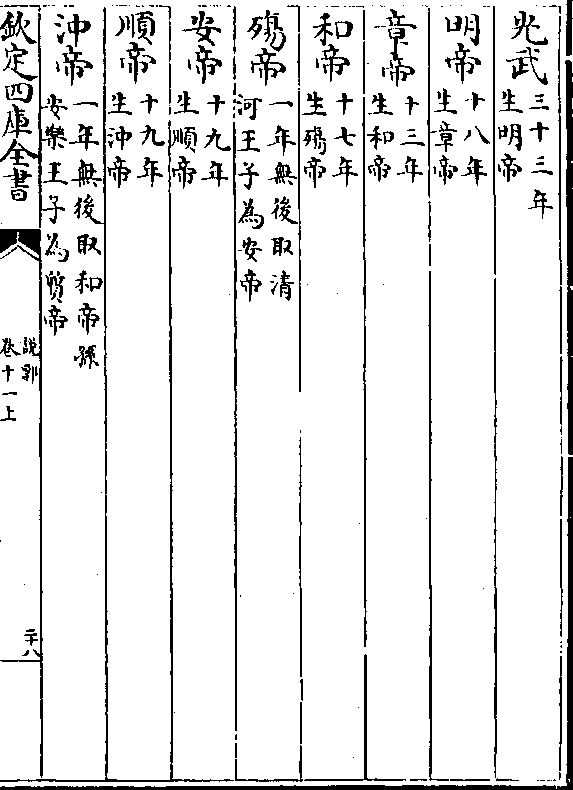 光武三十三年生明帝
明帝十八年生章帝
章帝十三年生和帝
和帝十七年生殤帝
殤帝一年無後取清河王子為安帝
安帝十九年生順帝
順帝十九年生沖帝
沖帝一年無後取和帝孫安樂王子為質帝
欽定四庫全書
說郛
卷十一上
二十八